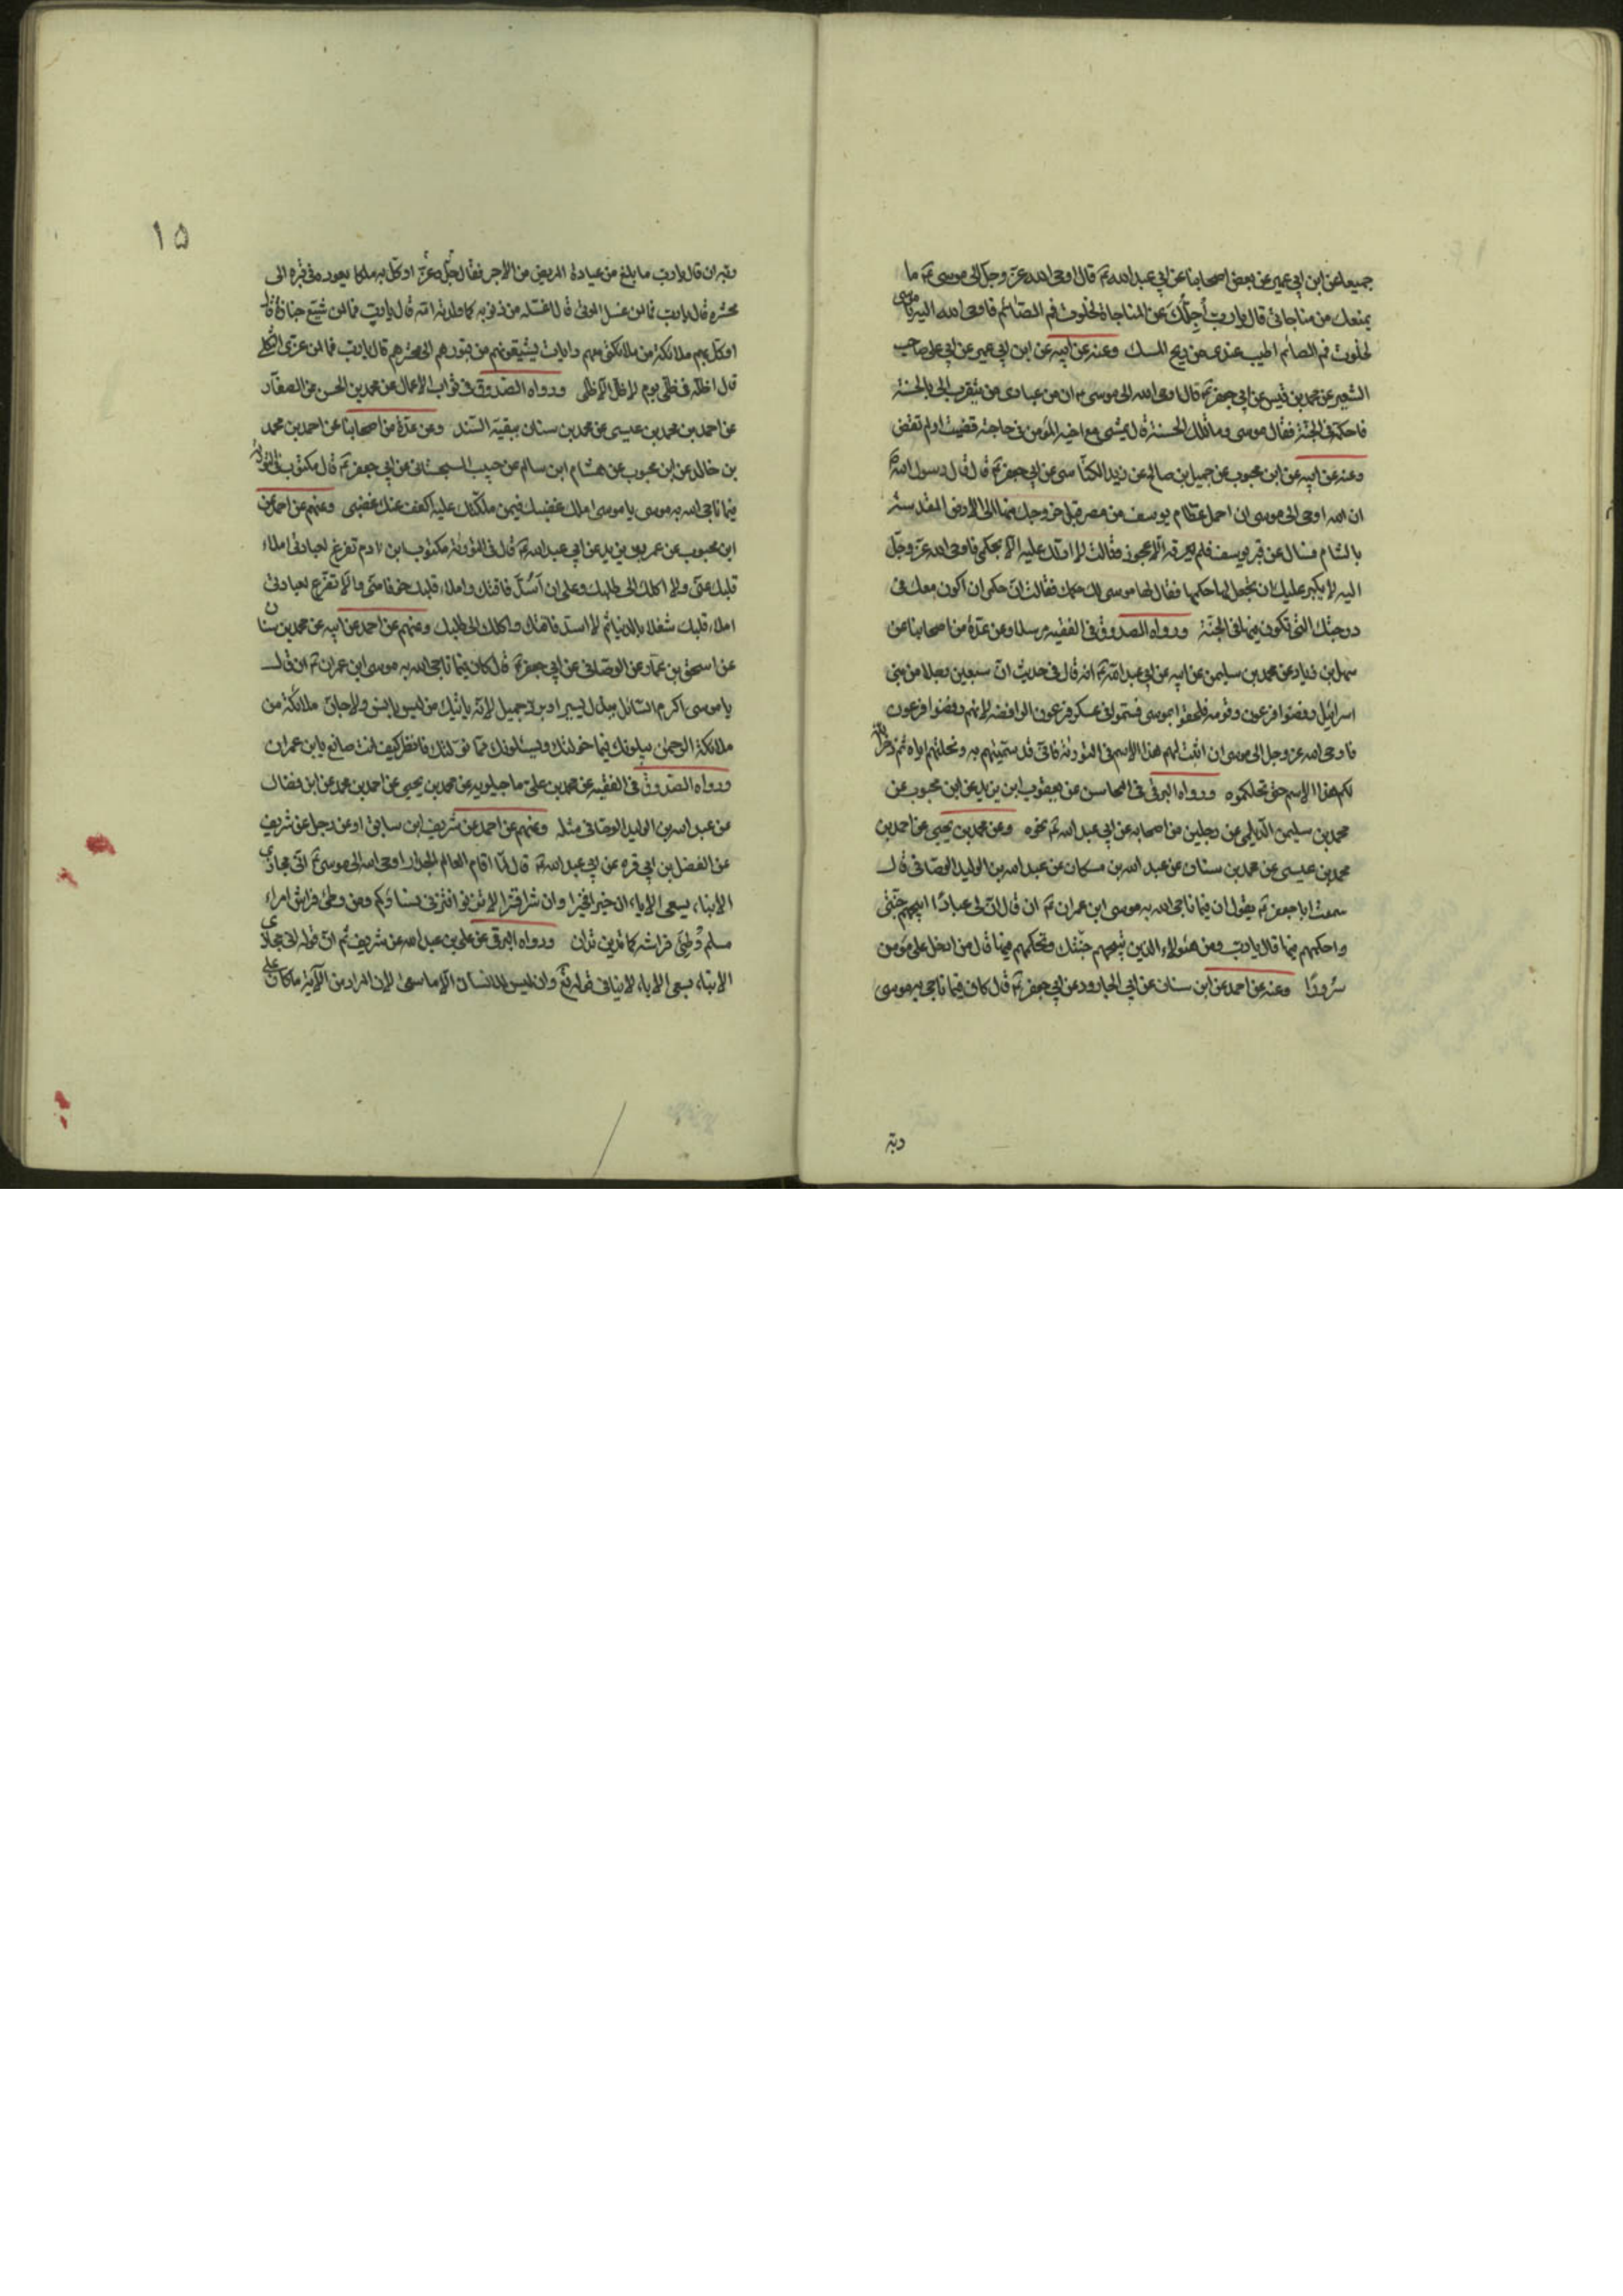 جميعا عن ابن ابي عمير عن بعض اصحابنا عن ابي عبد الله ع قال اوحى الله عز وجل الى موسى ع ما
يمنعك من مناجاتي قال يا رب أجلّك عن المناجاة لخلوف فم الصائم فاوحى الله اليه يا موسى
لخلوف فم الصائم اطيب عندي من ريح المسك وعنه عن ابيه عن ابن ابي عمير عن ابي علي صاحب
الشعير عن محمد بن قيس عن ابي جعفر ع قال اوحى الله الى موسى ان من عبادي من يتقرب الي بالحسنة
فاحكمه في الجنة فقال موسى وما تلك الحسنة قال يمشي مع اخيه المؤمن في حاجته قضيت او لم تقض
وعنه عن ابيه عن ابن محبوب عن جميل بن صالح عن يزيد الكناسي عن ابي جعفر ع قال قال رسول الله ص
ان الله اوحى الى موسى ان احمل عظام يوسف من مصر قبل خروجك منها الى الارض المقدسة
بالشام فسال عن قبر يوسف فلم يعرفه الا عجوز فقالت لا ادلك عليه الا بحكمي فاوحى الله عز وجل
اليه لا يكبر عليك ان تجعل لها حكمها فقال لها موسى لك حكمك فقالت ان حكمي ان اكون معك في
درجتك التي تكون فيها في الجنة ورواه الصدوق في الفقيه مرسلا وعن عدة من اصحابنا عن
سهل بن زياد عن محمد بن سليمن عن ابيه عن ابي عبد الله ع انه قال في حديث ان سبعين رجلا من بني
اسرائيل رفضوا فرعون وقومه فلحقوا بموسى فسموا في عسكر فرعون الرافضة لانهم رفضوا فرعون
فاوحى الله عز وجل الى موسى ان اثبت لهم هذا الاسم في التورية فاني قد سميتهم به ونحلتهم اياه ثم ذخر الله
لكم هذا الاسم حتى نحلكموه ورواه البرقي في المحاسن عن يعقوب ابن يزيد عن ابن محبوب عن
محمد بن سليمن الديلمي عن رجلين من اصحابه عن ابي عبد الله ع نحوه وعن محمد بن يحيى عن احمد بن
محمد بن عيسى عن محمد بن سنان عن عبد الله بن مسكان عن عبد الله بن الوليد الوصافي قال
سمعت ابا جعفر ع يقول ان فيما ناجى الله به موسى ابن عمران ع ان قال ان لي عبادا ابيحهم جنتي
واحكمهم فيها قال يا رب ومن هؤلاء الذين تبيحهم جنتك وتحكمهم فيها قال من ادخل على مؤمن
سرورا وعنه عن احمد عن ابن سنان عن ابي الجارود عن ابي جعفر ع قال كان فيما ناجى به موسى
ربه
١٥
ربه ان قال يا رب ما بلغ من عيادة المريض من الاجر فقال جل وعز اوكل به ملكا يعوده في قبره الى
محشره قال يا رب فما لمن غسل الموتى قال اغسله من ذنوبه كما ولدته امه قال يا رب فما لمن شيع جنازة قال
اوكل بهم ملائكة من ملائكتي معهم رايات يشيعونهم من قبورهم الى محشرهم قال يا رب فما لمن عزى الثكلى
قال اظله في ظلي يوم لا ظل الا ظلي ورواه الصدوق في ثواب الاعمال عن محمد بن الحسن عن الصفار
عن احمد بن محمد بن عيسى عن محمد بن سنان ببقية السند وعن عدة من اصحابنا عن احمد بن محمد
بن خالد عن ابن محبوب عن هشام ابن سالم عن حبيب السجستاني عن ابي جعفر ع قال مكتوب في التورية
فيما ناجى الله به موسى يا موسى املك غضبك فيمن ملكتك عليه اكفف عنك غضبي وعنهم عن احمد عن
ابن محبوب عن عمر بن يزيد عن ابي عبد الله ع قال في التورية مكتوب ابن ادم تفرغ لعبادتي املاء
قلبك غنى ولا اكلك الى طلبك وعلي ان اسد فاقتك واملاء قلبك خوفا مني والا تفرغ لعبادتي
املاء قلبك شغلا بالدنيا ثم لا اسد فاقتك واكلك الى طلبك وعنهم عن احمد عن ابيه عن محمد بن سنان
عن اسحق بن عمار عن الوصافي عن ابي جعفر ع قال كان فيما ناجى الله به موسى ابن عمران ع ان قال
يا موسى اكرم السائل ببذل يسير او برد جميل لانه ياتيك من ليس بانس ولا جان ملائكة من
ملائكة الرحمن يبلونك فيما خولتك ويسئلونك فما نولتك فانظر كيف انت صانع يا ابن عمران
ورواه الصدوق في الفقيه عن محمد بن علي ماجيلويه عن محمد بن يحيى عن احمد بن محمد عن ابن فضال
عن عبد الله بن الوليد الوصافي مثله وعنهم عن احمد عن شريف ابن سابق او عن رجل عن شريف
عن الفضل بن ابي قره عن ابي عبد الله ع قال لما اقام العالم الجدار اوحى الله الى موسى ع اني مجازي
الابناء بسعي الاباء ان خيرا فخيرا وان شرا فشرا لا تزنوا فتزني نساؤكم ومن وطئ فراش امراء
مسلم وطئ فراشه كما تدين تدان ورواه البرقي عن علي بن عبد الله عن شريف ثم ان قوله اني مجازي
الابناء بسعي الاباء لا ينافي قوله تع وان ليس للانسان الا ما سعى لان المراد من الآية ما كان على